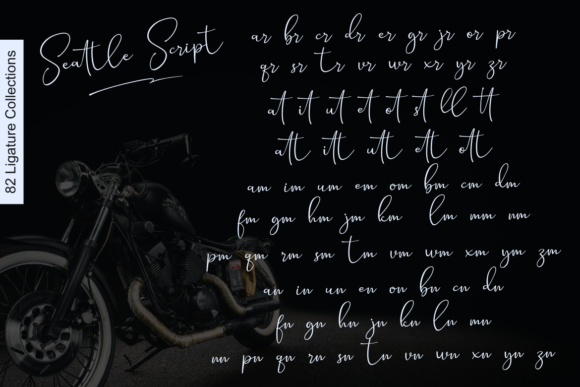 Seattle Script
82 Ligature Collections
ar br cr dr er gr jr or pr
qr sr tr vr wr xr yr zr
at it ut et ot st ll tt
att itt utt ett ott
am im um em om bm cm dm
fm gm hm jm km lm mm nm
pm qm rm sm tm vm wm xm ym zm
an in un en on bn cn dn
fn gn hn jn kn ln mn
nn pn qn rn sn tn vn wn xn yn zn